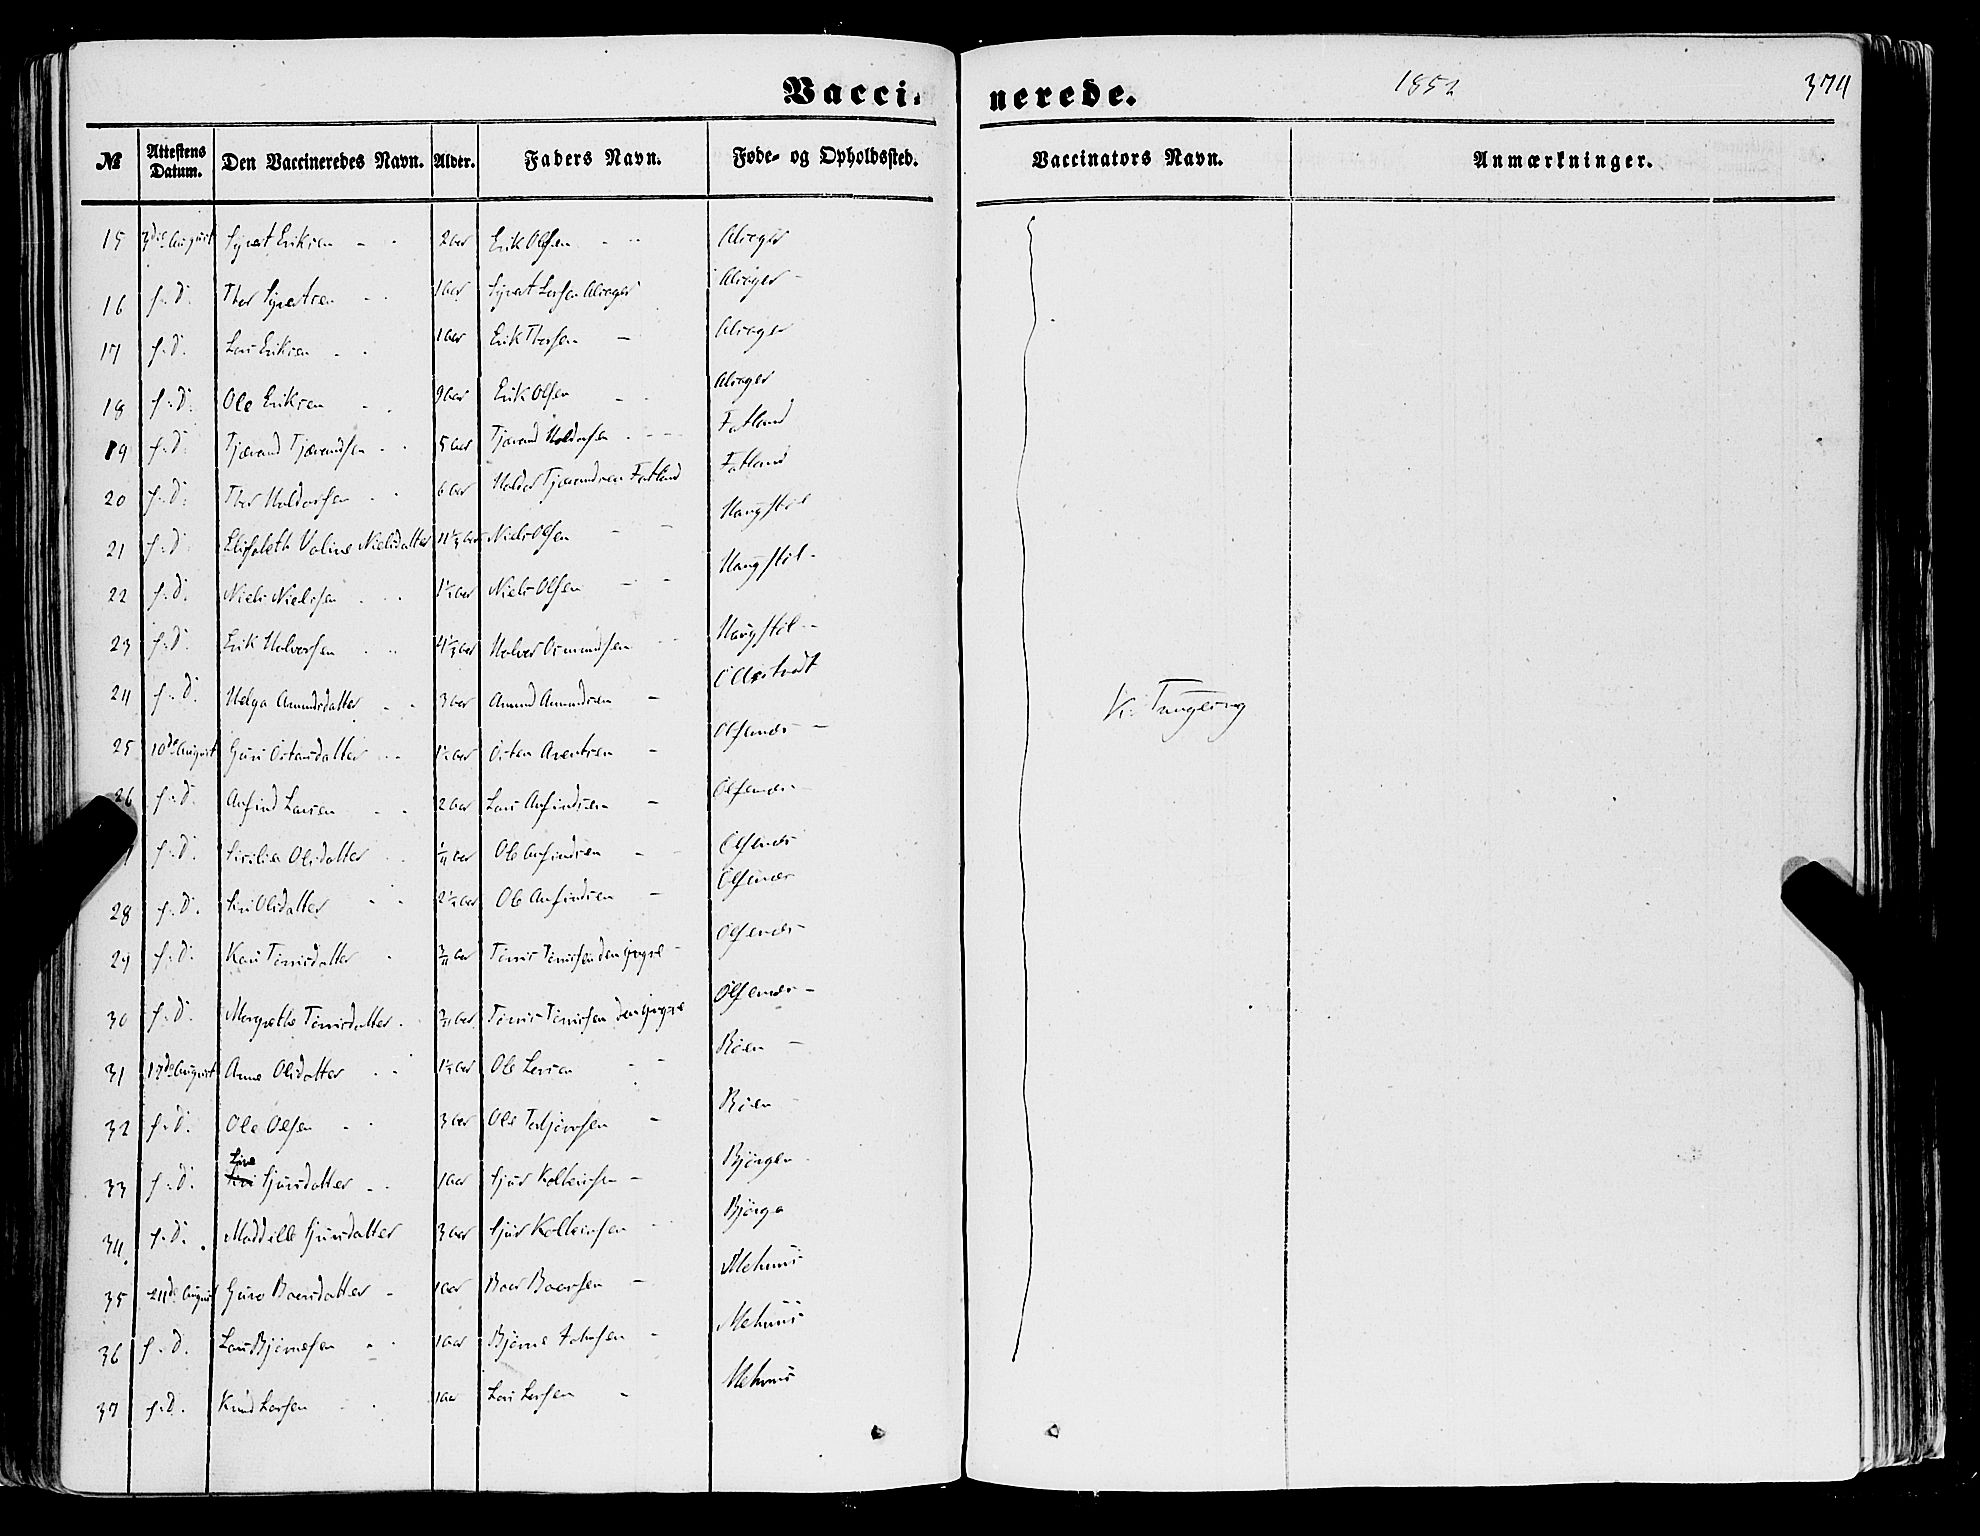 Vaccinerede. 1852 374
№ Attestens Datum. Den Vaccineredes Navn. Alder. Fabers Navn. Føde- og Opholdssted. Vaccinators Navn. Anmærkninger.
15 3die August Syvert Eriksen - - 2 aar Erik Olsen - - Alvager
16 s. D. Thor Syvertsen - - 1 aar Syvert Larsen Alvager Alvager -
17 s. D. Lars Eriksen - - 1 aar Erik Thorsen - Alvager
18 s. D. Ole Eriksen - - 9 aar Erik Olsen - - Alvager
19 s. D. Tjærand Tjærandsen - - 5 aar Tjærand Haldorsen - - - Fatland
20 s. D. Thor Haldorsen - - 6 aar Haldor Tjærandsen Fatland Fatland
21 s. D. Elisabeth Valine Nielsdatter aar Niels Olsen - - Haugstøl
22 s. D. Niels Nielsen - - 1½ aar Niels Olsen - - Haugstøl -
23 s. D. Erik Halvorsen - - aar Halvor Osmundsen - - Haugstøl -
24 s. D. Helga Amundsdatter - - 3 aar Amund Amundsen - Øllestvedt
25 10de August Guri Østensdatter - - 1½ aar Østen Aventsen - Ølfernæs -
26 s. D. Anfind Larsen - - 2 aar Lars Anfindsen - Ølfernæs -
s. D. Sicilia Olsdatter - - aar Ole Anfindsen - - Ølfernæs
28 s. D. Siri Olsdatter - - 2½ aar Ole Anfindsen - Ølfernæs
29 s. D. Kari Tønnisdatter - aar Tønnis Tønnisen den yngre - Ølfernæs -
30 s. D. Margrethe Tønnisdatter - aar Tønnis Tønnisen den yngre Ølfernæs -
31 17de August Anne Olsdatter - - 1½ aar Ole Larsen - - Røen -
32 s. D. Ole Olsen - - 3 aar Ole Torbjørnsen - Røen -
Sine
33 s. D. Siri Sjursdatter - - 1 aar Sjur Kolbeinsen - Bjørgen -
34 s. D. Maddille Sjursdatter 3 aar Sjur Kolbeinsen - - Bjørga
35 24de August Guro Baarsdatter - 1 aar Baar Baarsen - Mehuus
36 s. D. Lars Bjørnesen - - 1 aar Bjørne Johnsen - Mehuus
37 s. D. Knud Larsen - - 1 aar Lars Larsen - Mehuus
K. Tungesvig